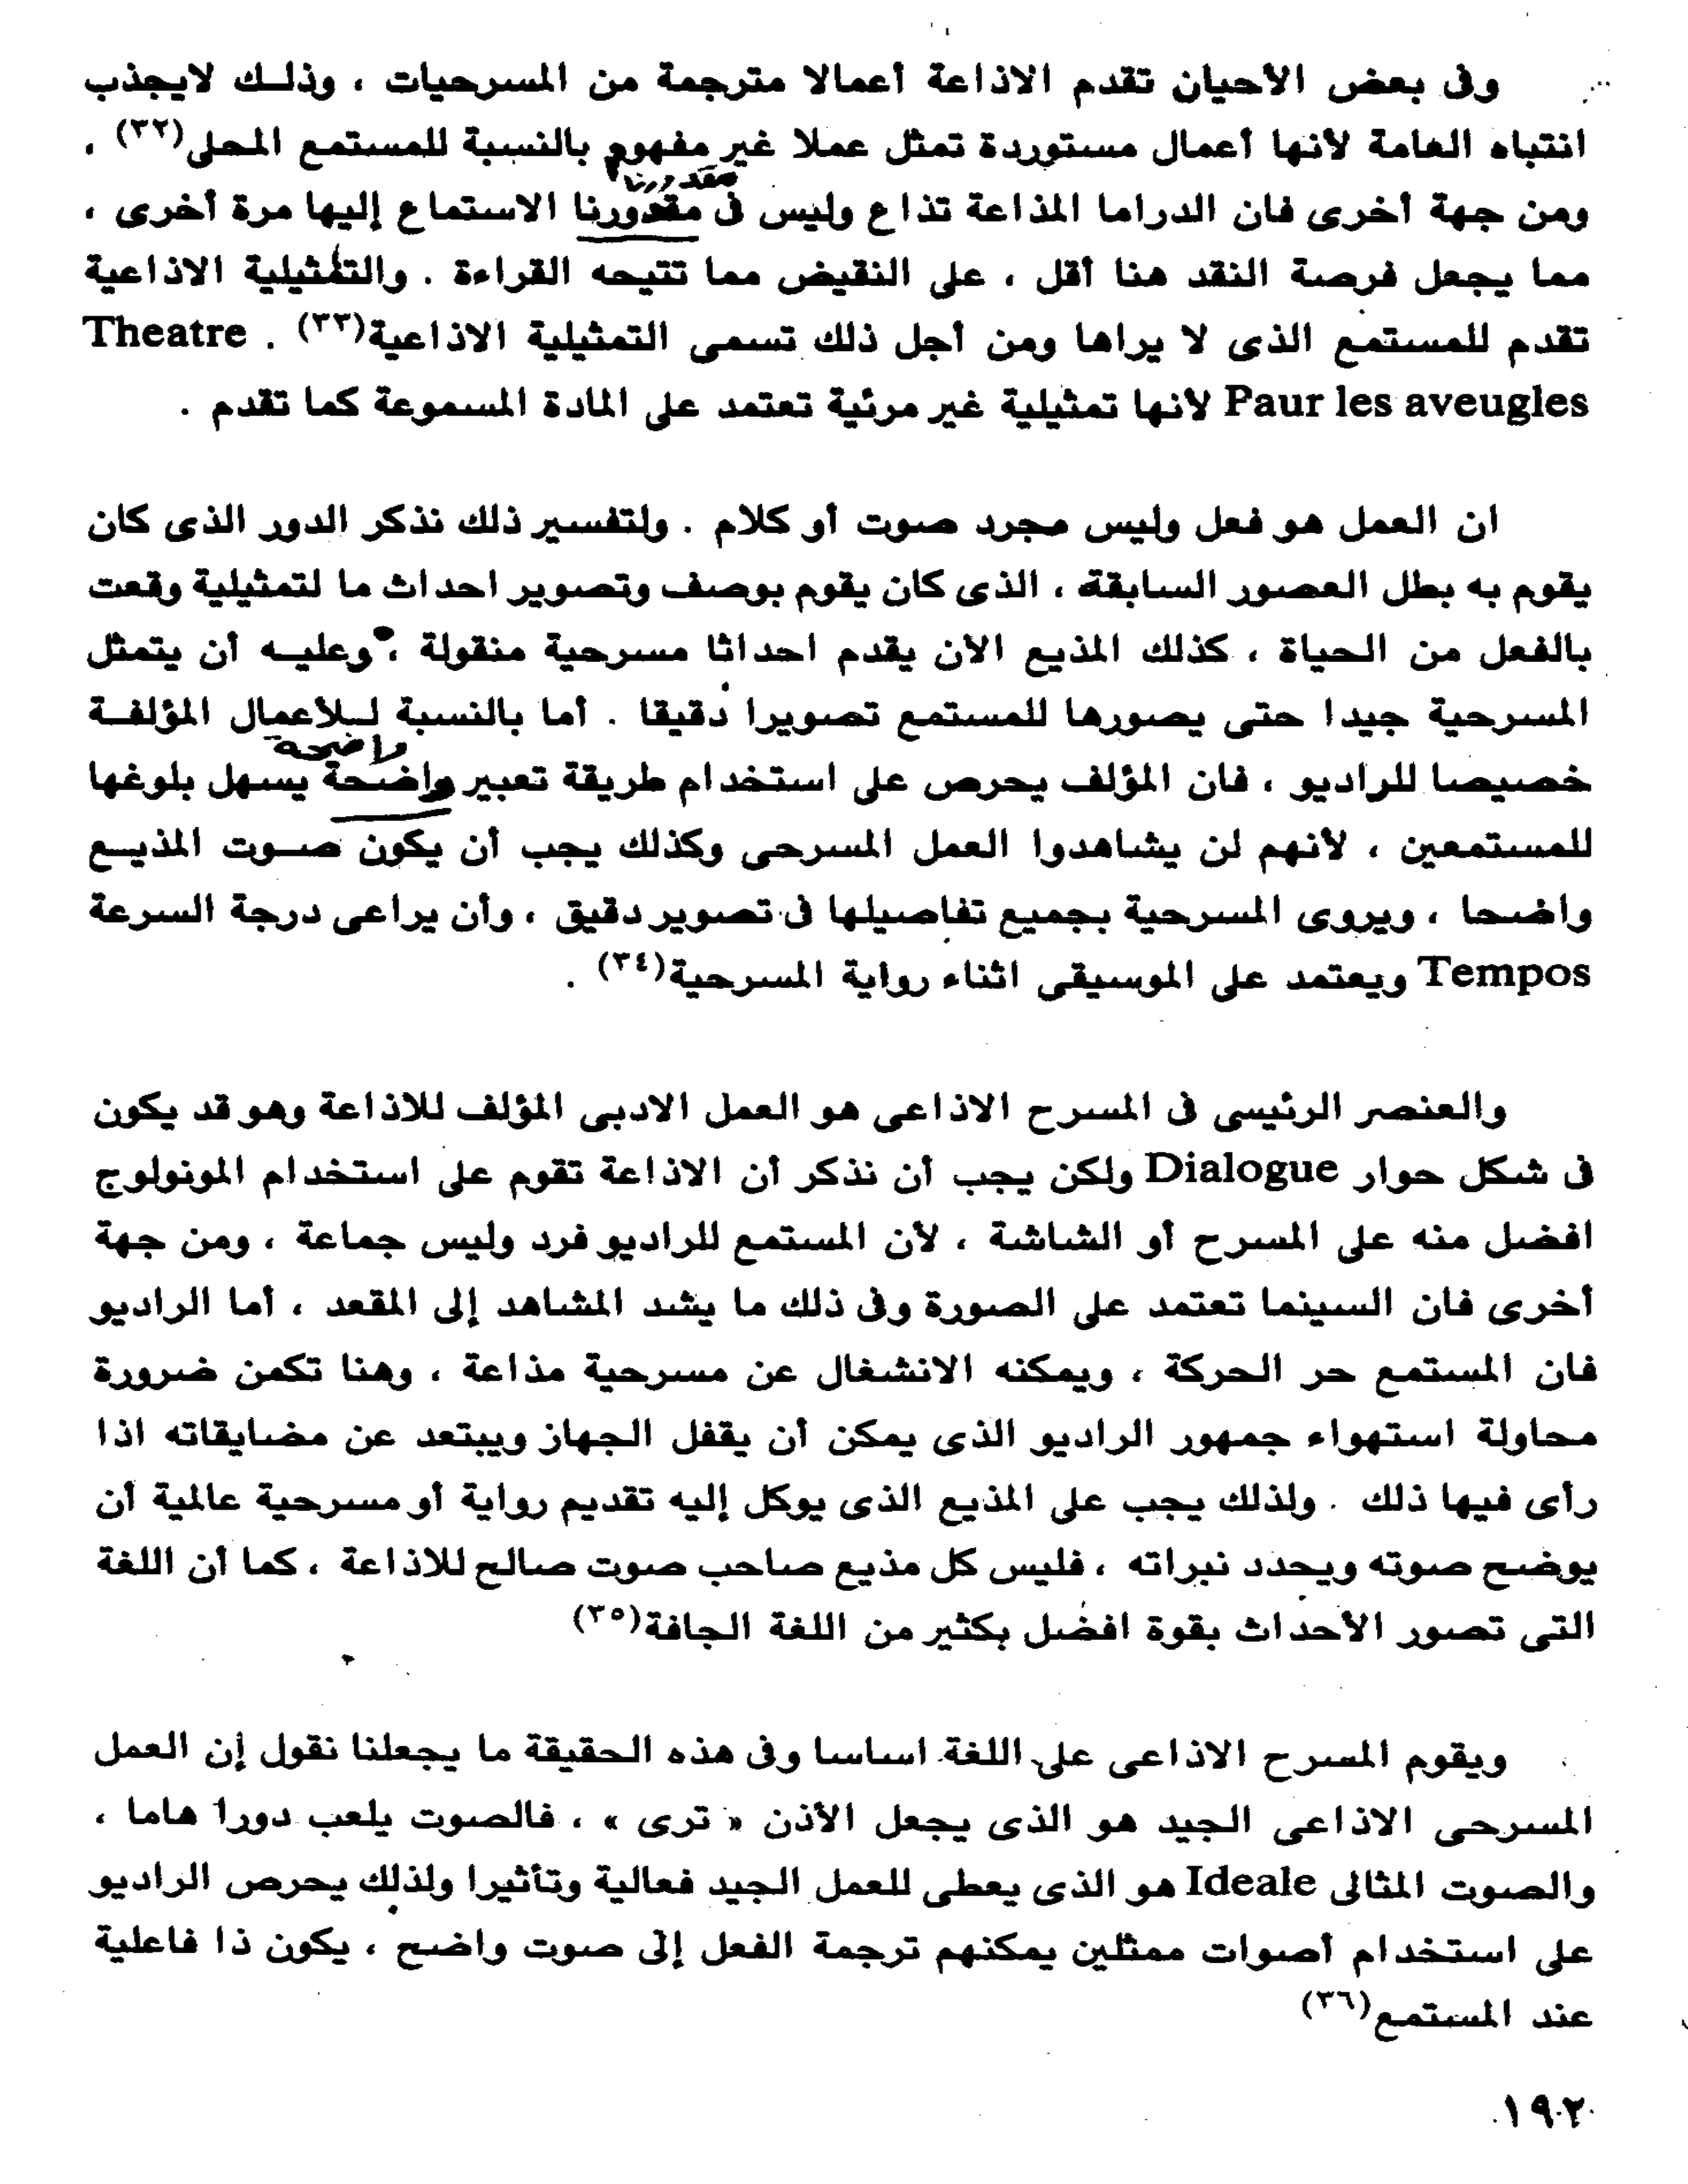 وفى بعض الأحيان تقدم الاذاعة أعمالا مترجمة من المسرحيات ، وذلك لايجذب
انتباه العامة لأنها أعمال مستوردة تمثل عملا غير مفهوم بالنسبة للمستمع المحلى(٣٢) ،
مقدورنا
ومن جهة أخرى فان الدراما المذاعة تذاع وليس فى مقدورنا الاستماع إليها مرة أخرى ،
مما يجعل فرصة النقد هنا أقل ، على النقيض مما تتيحه القراءة . والتمثيلية الاذاعية
تقدم للمستمع الذى لا يراها ومن أجل ذلك تسمى التمثيلية الاذاعية(٣٣) . Theatre
Paur les aveugles لانها تمثيلية غير مرئية تعتمد على المادة المسموعة كما تقدم .
ان العمل هو فعل وليس مجرد صوت أو كلام . ولتفسير ذلك نذكر الدور الذى كان
يقوم به بطل العصور السابقة ، الذى كان يقوم بوصف وتصوير احداث ما لتمثيلية وقعت
بالفعل من الحياة ، كذلك المذيع الان يقدم احداثا مسرحية منقولة ، وعليه أن يتمثل
المسرحية جيدا حتى يصورها للمستمع تصويرا دقيقا . أما بالنسبة للأعمال المؤلفة
واضحة
خصيصا للراديو ، فان المؤلف يحرص على استخدام طريقة تعبير واضحة يسهل بلوغها
للمستمعين ، لأنهم لن يشاهدوا العمل المسرحى وكذلك يجب أن يكون صوت المذيع
واضحا ، ويروى المسرحية بجميع تفاصيلها فى تصوير دقيق ، وأن يراعى درجة السرعة
Tempos ويعتمد على الموسيقى اثناء رواية المسرحية(٣٤) .
والعنصر الرئيسى فى المسرح الاذاعى هو العمل الادبى المؤلف للاذاعة وهو قد يكون
فى شكل حوار Dialogue ولكن يجب أن نذكر أن الاذاعة تقوم على استخدام المونولوج
افضل منه على المسرح أو الشاشة ، لأن المستمع للراديو فرد وليس جماعة ، ومن جهة
أخرى فان السينما تعتمد على الصورة وفى ذلك ما يشد المشاهد إلى المقعد ، أما الراديو
فان المستمع حر الحركة ، ويمكنه الانشغال عن مسرحية مذاعة ، وهنا تكمن ضرورة
محاولة استهواء جمهور الراديو الذى يمكن أن يقفل الجهاز ويبتعد عن مضايقاته اذا
رأى فيها ذلك . ولذلك يجب على المذيع الذى يوكل إليه تقديم رواية أو مسرحية عالمية أن
يوضح صوته ويحدد نبراته ، فليس كل مذيع صاحب صوت صالح للاذاعة ، كما أن اللغة
التى تصور الأحداث بقوة افضل بكثير من اللغة الجافة(٣٥)
ويقوم المسرح الاذاعى على اللغة اساسا وفى هذه الحقيقة ما يجعلنا نقول إن العمل
المسرحى الاذاعى الجيد هو الذى يجعل الأذن « ترى » ، فالصوت يلعب دورا هاما ،
والصوت المثالى Ideale هو الذى يعطى للعمل الجيد فعالية وتأثيرا ولذلك يحرص الراديو
على استخدام أصوات ممثلين يمكنهم ترجمة الفعل إلى صوت واضح ، يكون ذا فاعلية
عند المستمع(٣٦)
١٩٢